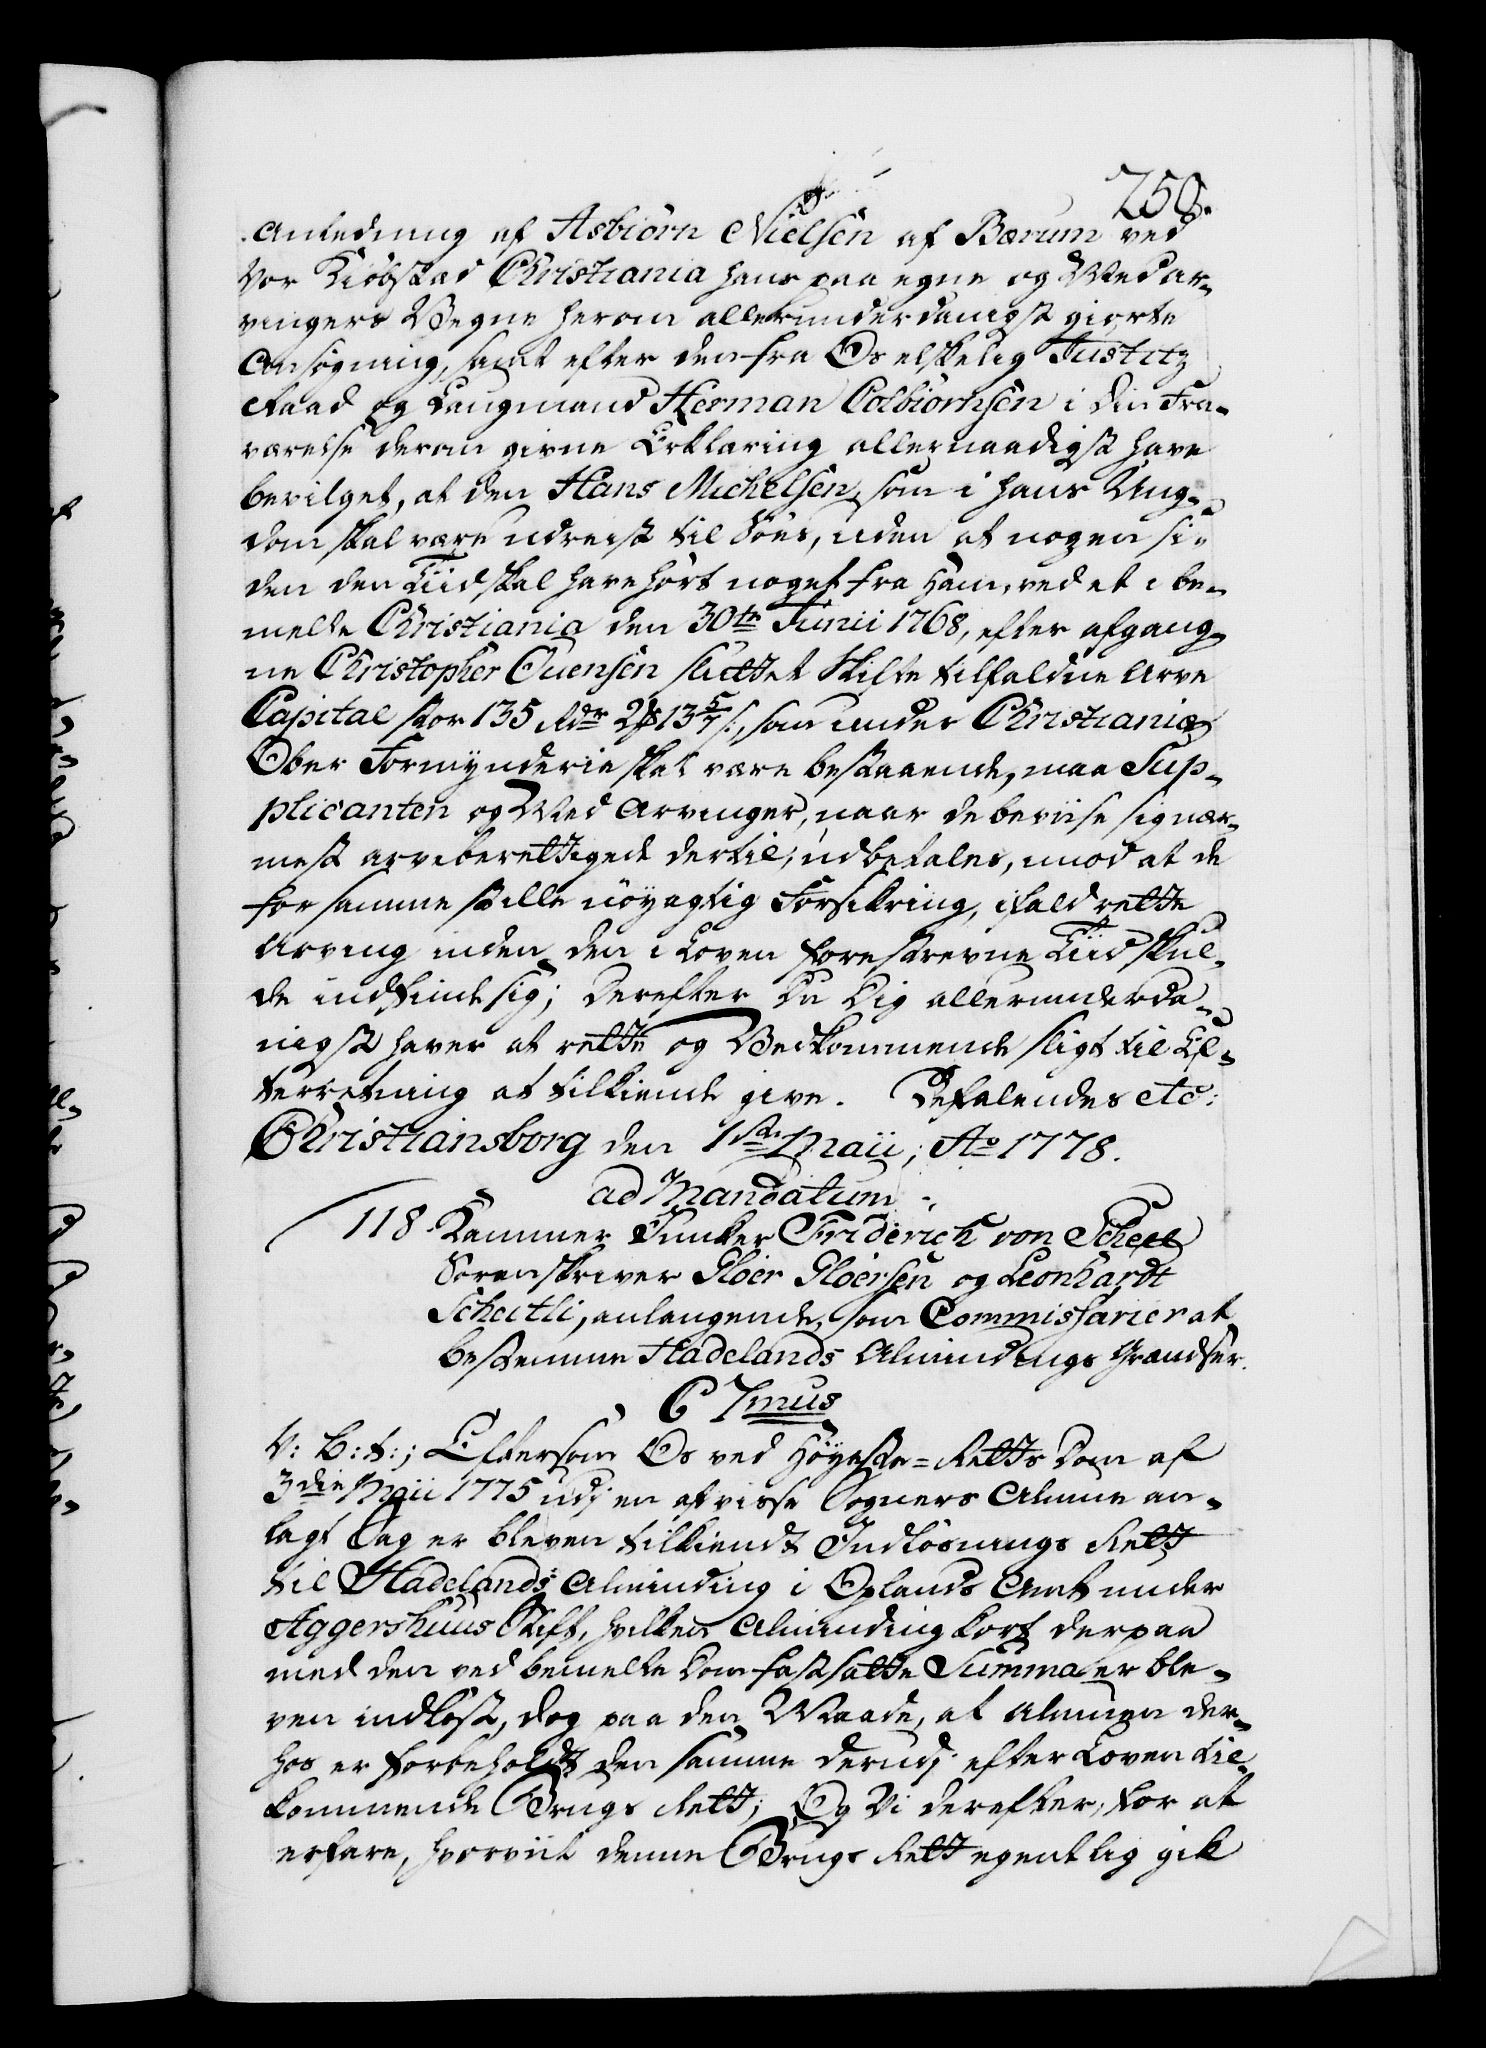 250.
Anledning af Asbiörn Nielsen af Bærum ved
Vor Kiöbstad Christiania hans paa egne og Medar-
vingers Vegne herom allerunderdanigst giorte
Ansøgning, samt efter den fra Os elskelig Justitz
Raad og Laugmand Herman Colbiörnsen i din Fra-
værelse derom givne Erklæring allernaadigst have
bevilget, at den Hans Michelsen, som i hans Ung-
dom skal være udreist til Söes, uden at nogen si-
den den Tiid skal have hört noget fra ham, ved et i be-
melte Christiania den 30te Junii 1768, efter afgang-
ne Christopher Ovensen sluttet Skifte tilfaldne Arve
Capital stor 135 Rdr 2 ß 13 5/7 s:, som under Christianiæ
Ober Formynderie skal være bestaaende, maa Sup-
plicanten og Med Arvinger, naar de beviise sig nær-
mest arveberettigede dertil, udbetales, imod at de
for samme stille nöyagtig Forsikring, ifald rette
Arving inden den i Loven foreskrevne Tiid skul-
de indfinde sig; Derefter Du Dig allerunderda-
nigst haver at rette og Vedkommende sligt til Ef-
terretning at tilkiende give. Befalendes etc:
Christiansborg den 1ste Maii, Ao 1778.
ad Mandatum
118 Kammer Junker Friderich von Schell
Sorenskriver Gloer Gloersen og Leonhardt
Scheitli, anlangende, som Commissarier at
bestemme Hadelands Almindings Grændser.
C 7mus
V: B: t:; Eftersom Os ved Höyeste-Retts Dom af
3die Maii 1775 udj en af visse Sogners Almue an-
lagt Sag er bleven tilkiendt Indlösnings Rett
til Hadelands Alminding i Oplands Amt under
Aggershuus Stift, hvilken Alminding kort derpaa
med den ved bemelte Dom fastsatte Summa er ble-
ven indlöst, dog paa den Maade, at Almuen der-
hos er forbeholdt den samme derudj efter Loven til-
kommende Brugs Rett; Og Vi derefter, for at
erfare, hvorviit denne Brugs Rett egentlig gik